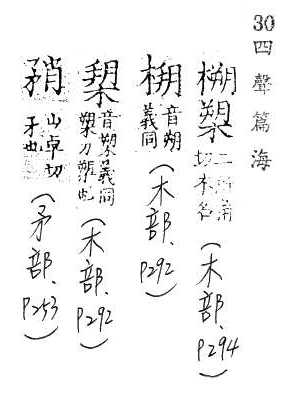 30四聲篇海
槊 二所角切木名(木部、P294)
音朔義同(木部、P292)
音槊義同(木部、P292)
矟 山卓切矛也(矛部、P253)